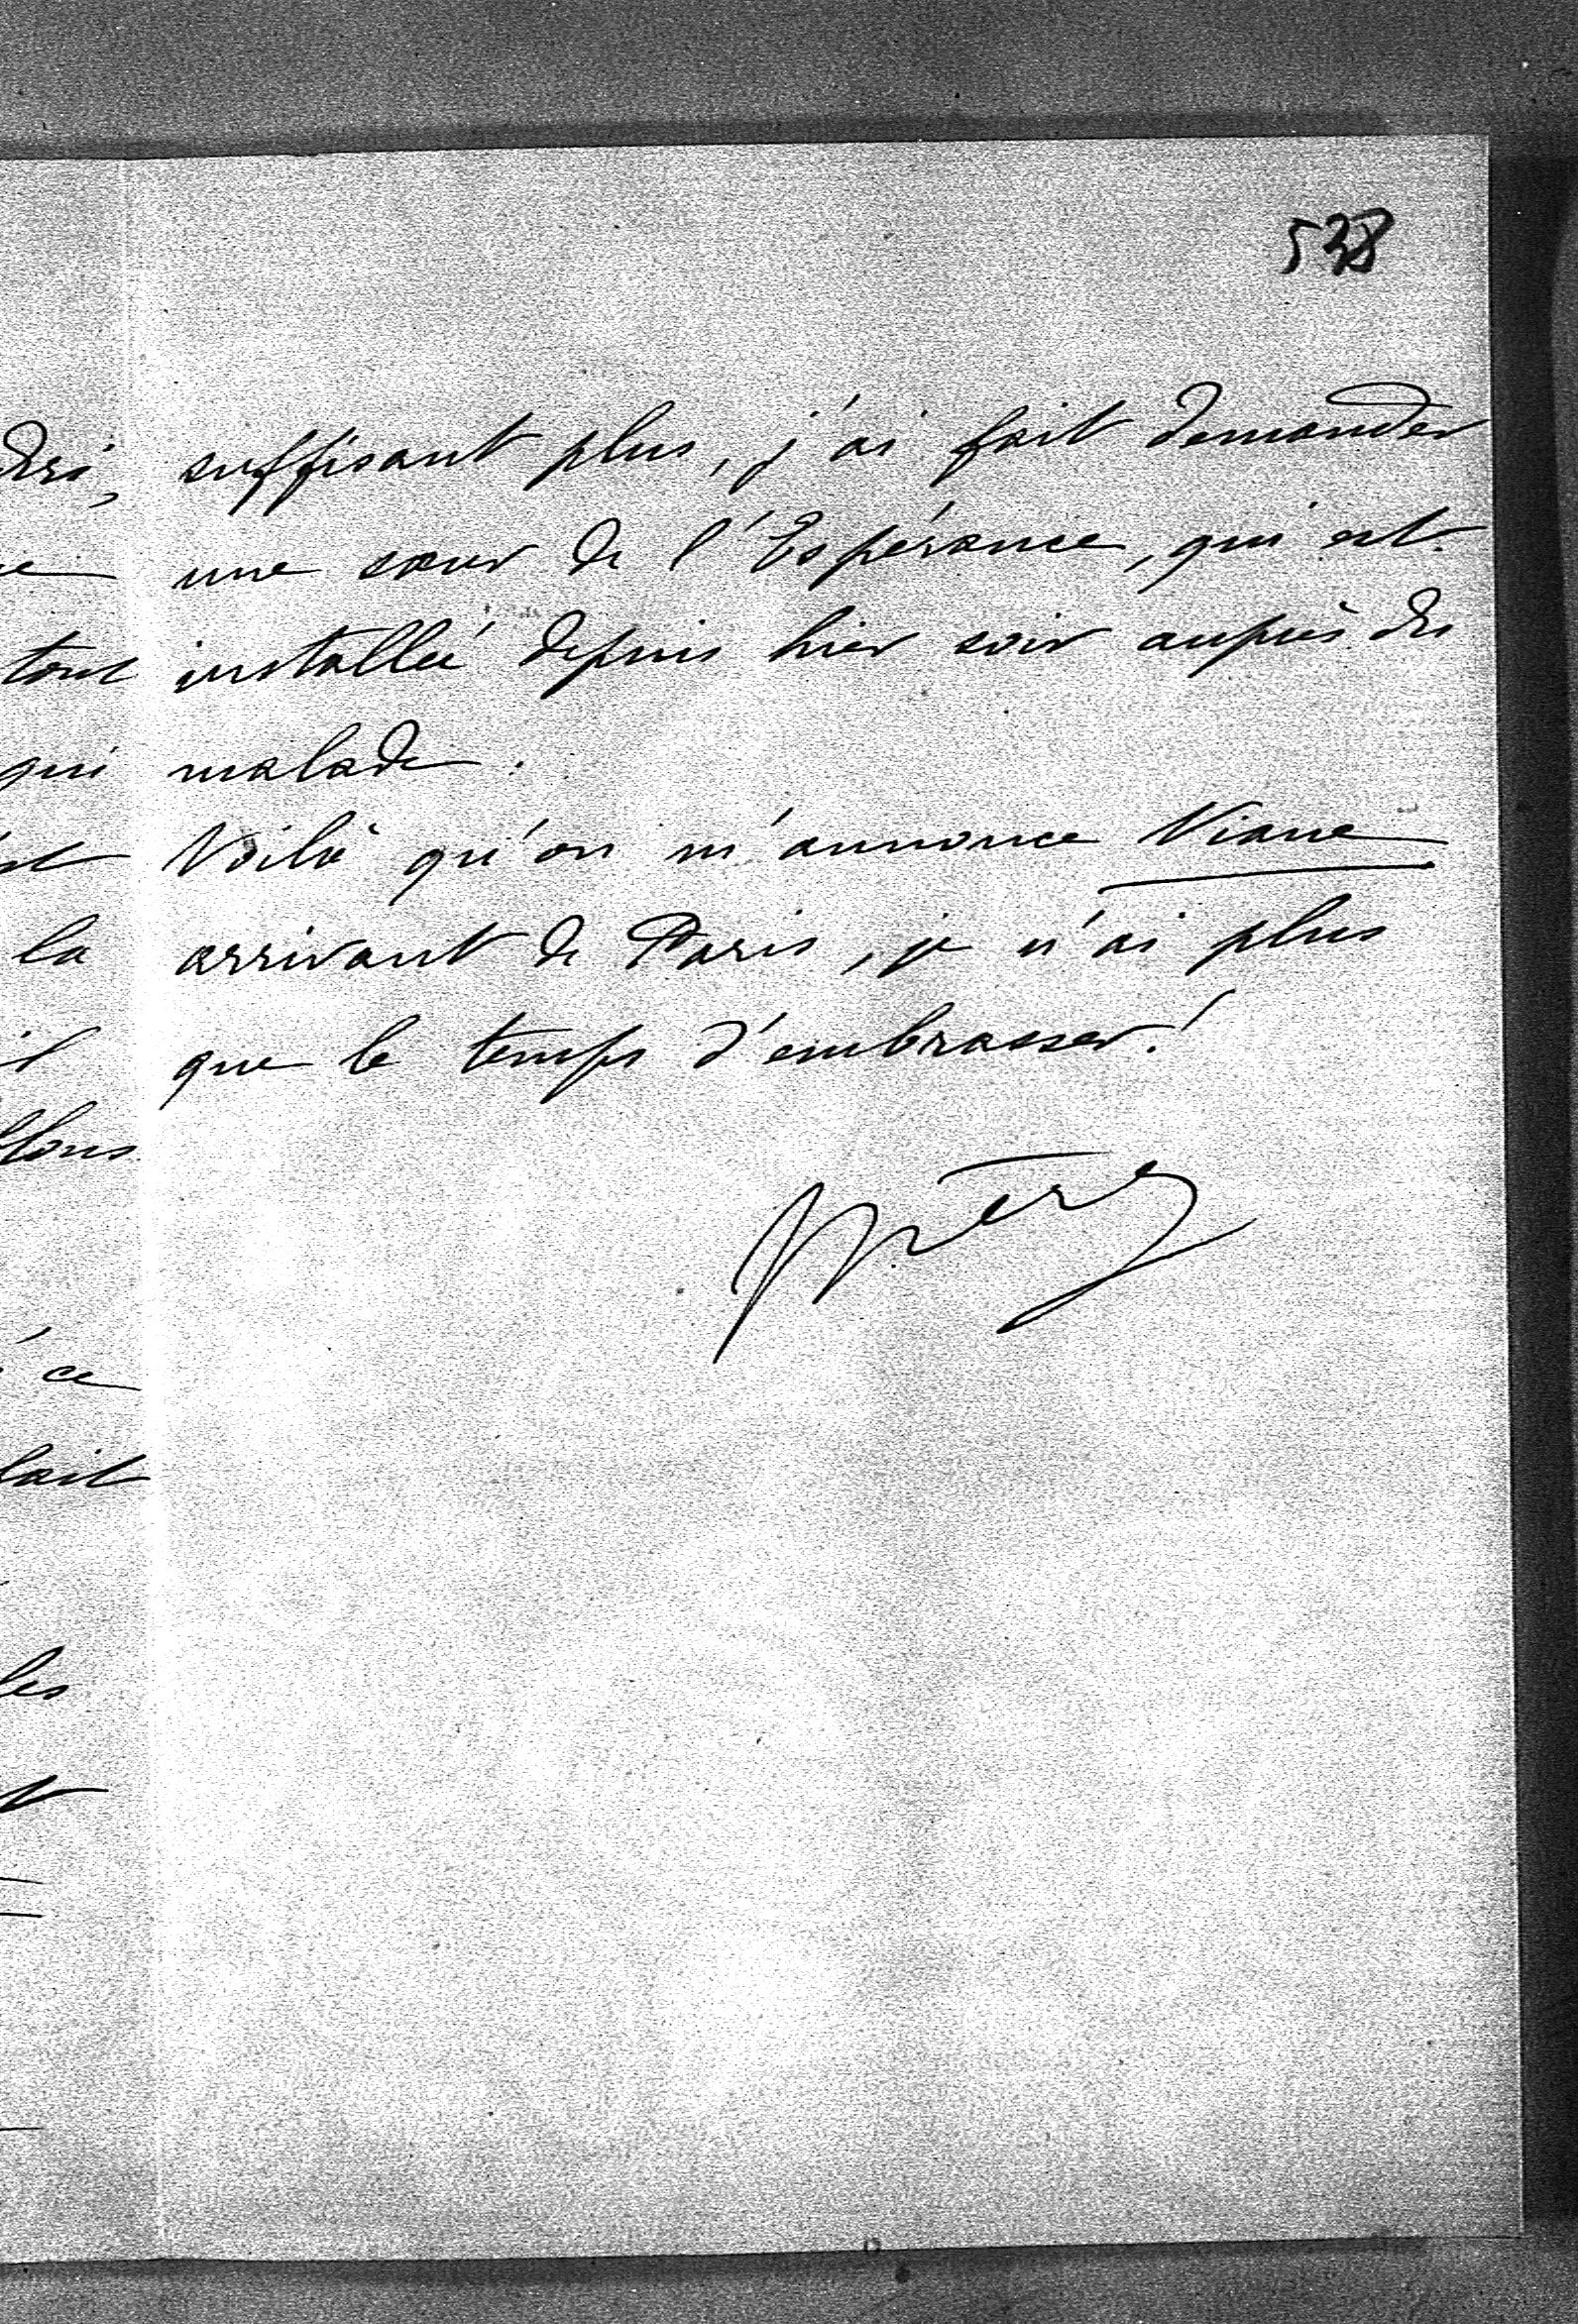 538
suffisant plus, j'ai fait demander
une sœur de l'Espérance, qui est
installée depuis hier soir auprès du
malade.
Voilà qu'on m'annonce Viane
arrivant de Paris, je n'ai plus
que le temps d'embrasser!
dri,
tout
qui
la
ce
lait
les